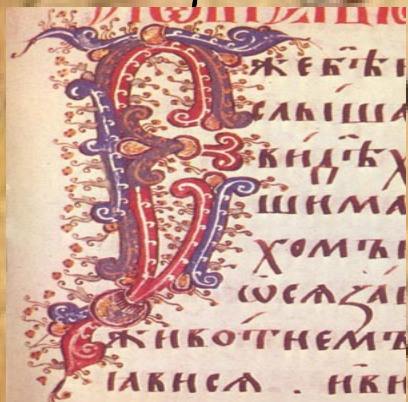 жебѣ н
слыша
видѣх
шима
хомъ н
ѡсѧзаі
животнемъ
ꙗвисѧ . иви